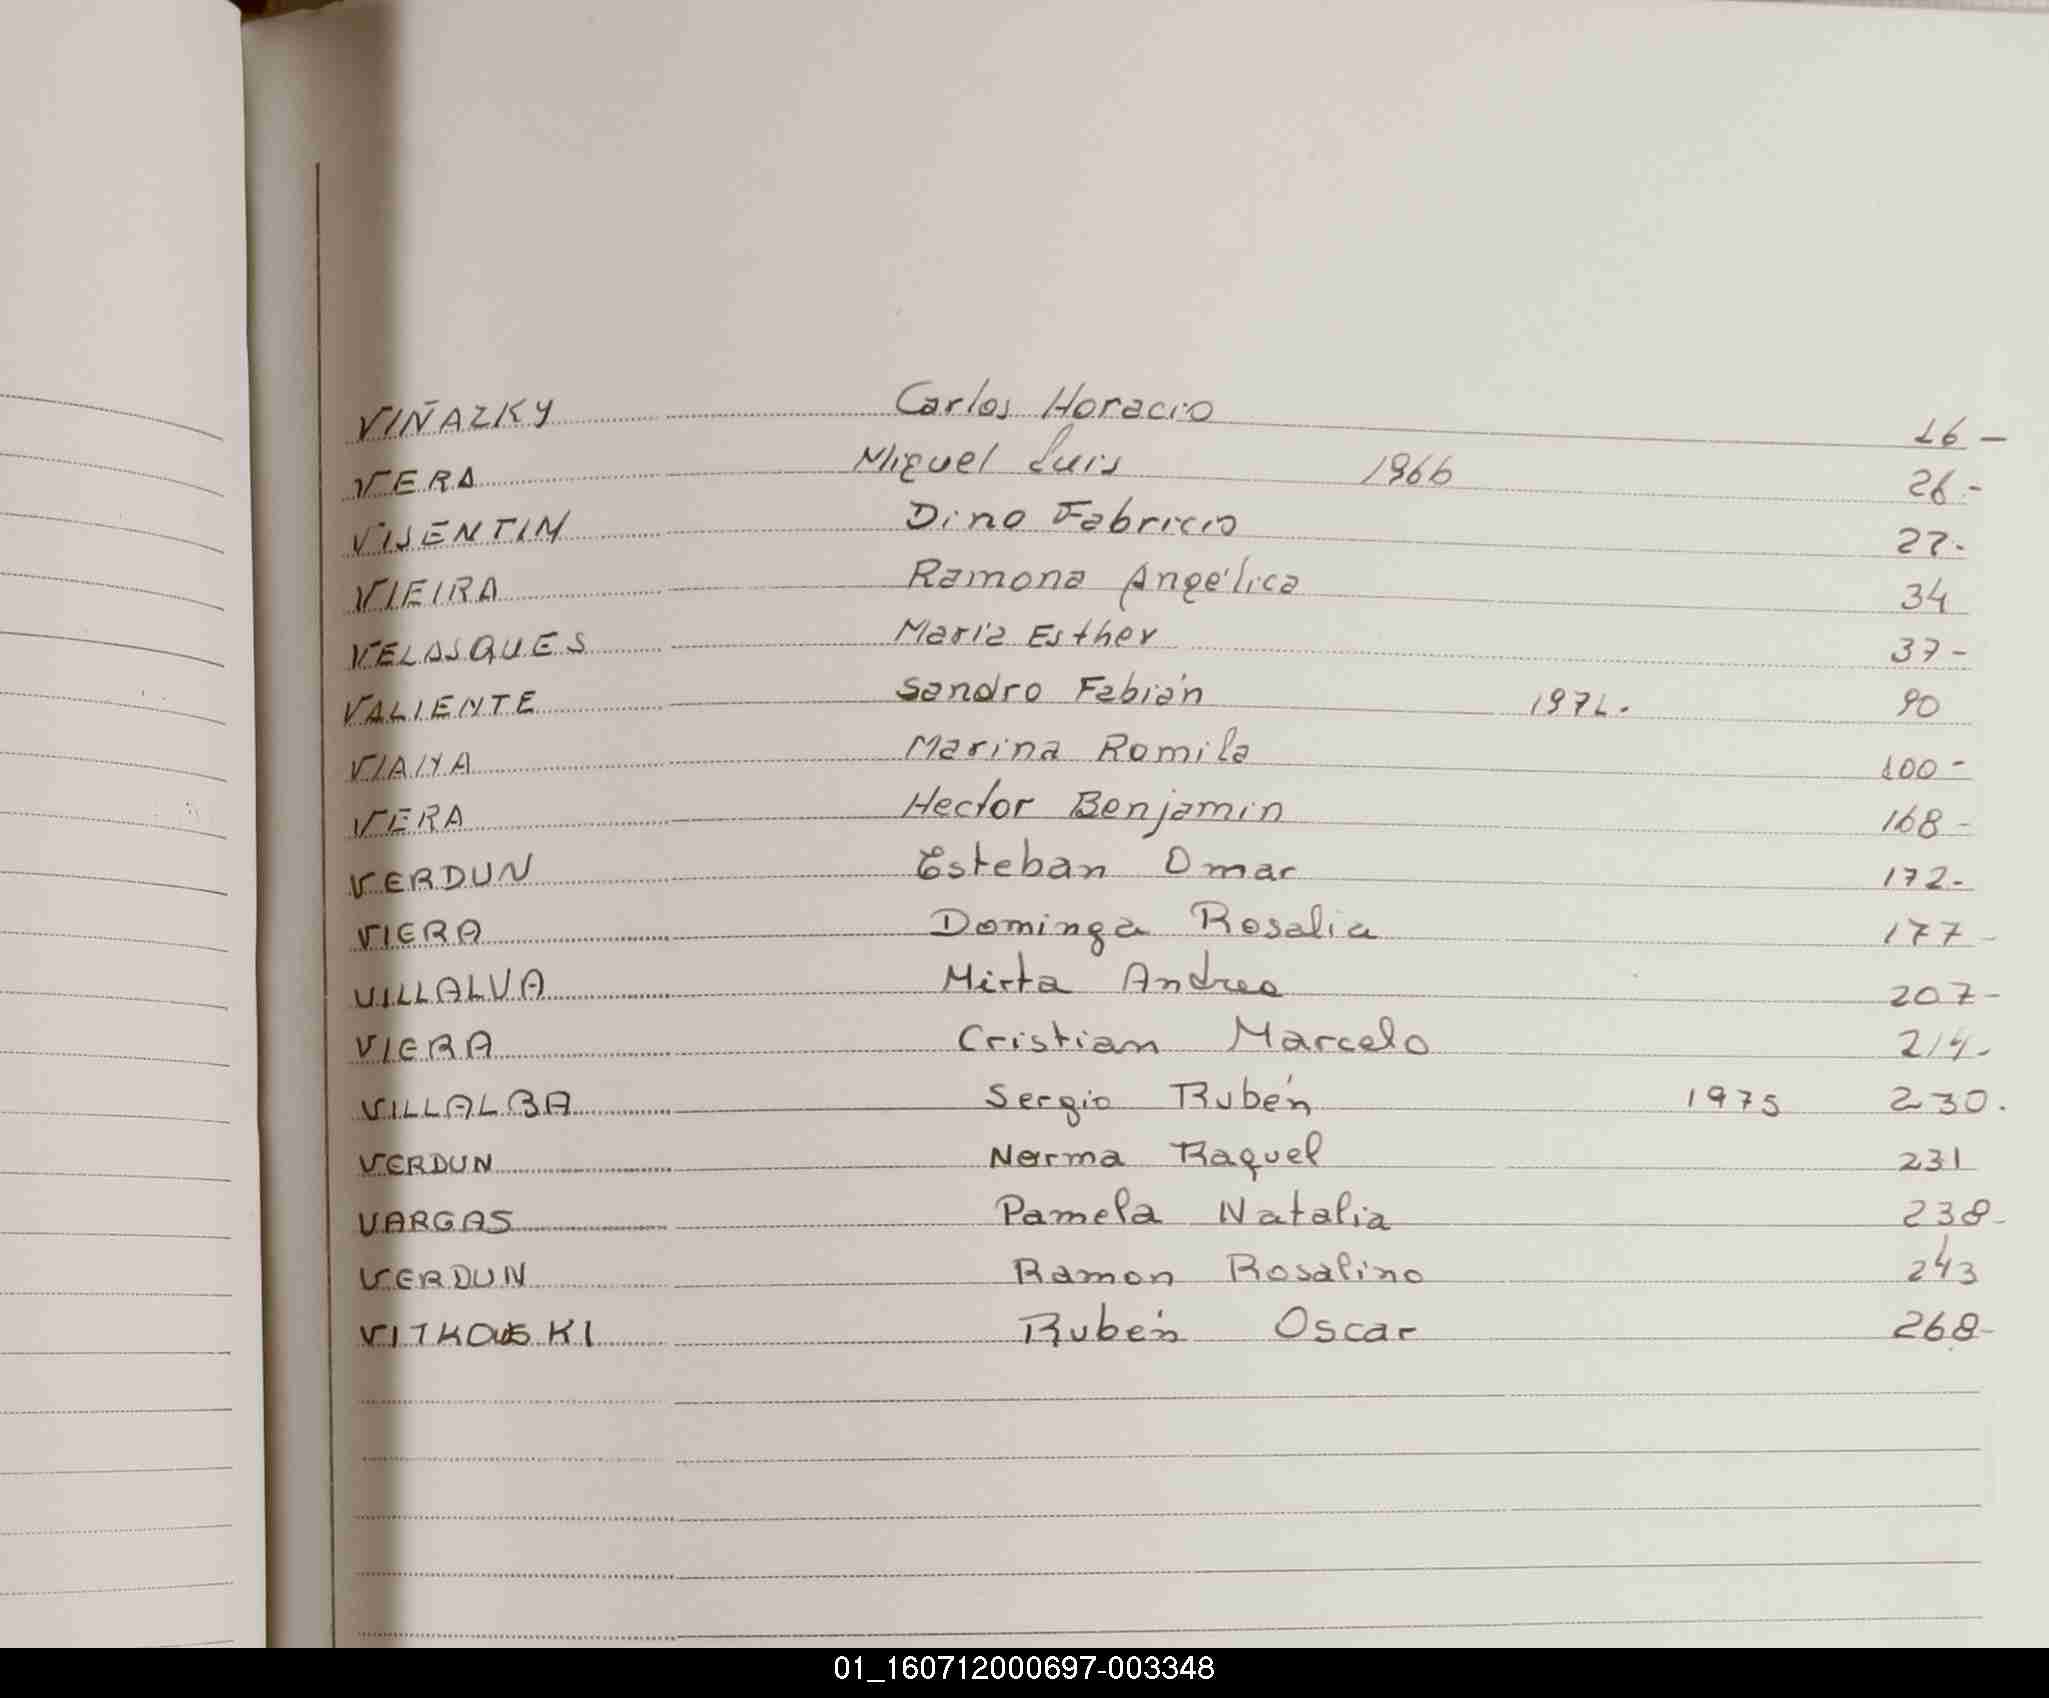 VIÑAZKY Carlos Horacio 16 -
VERA Miguel Luis 1966 26.-
VISENTIM Dino Fabricio 27.
VIEIRA Ramona Angélica 34
VELASQUES María Esther 37-
VALIENTE Sandro Fabián 1971. 90
Marina Romila 100-
VERA Hector Benjamin 168-
VERDUN Esteban Omar 172-
VIERA Dominga Rosalia 177-
VILLALVA Mirta Andrea 207-
VIERA Cristian Marcelo 214-
VILLALBA Sergio Rubén 1975 230.
VERDUN Norma Raquel 231
VARGAS Pamela Natalia 238-
VERDUN Ramon Rosalino 243
Rubén Oscar 268-
01_160712000697-003348